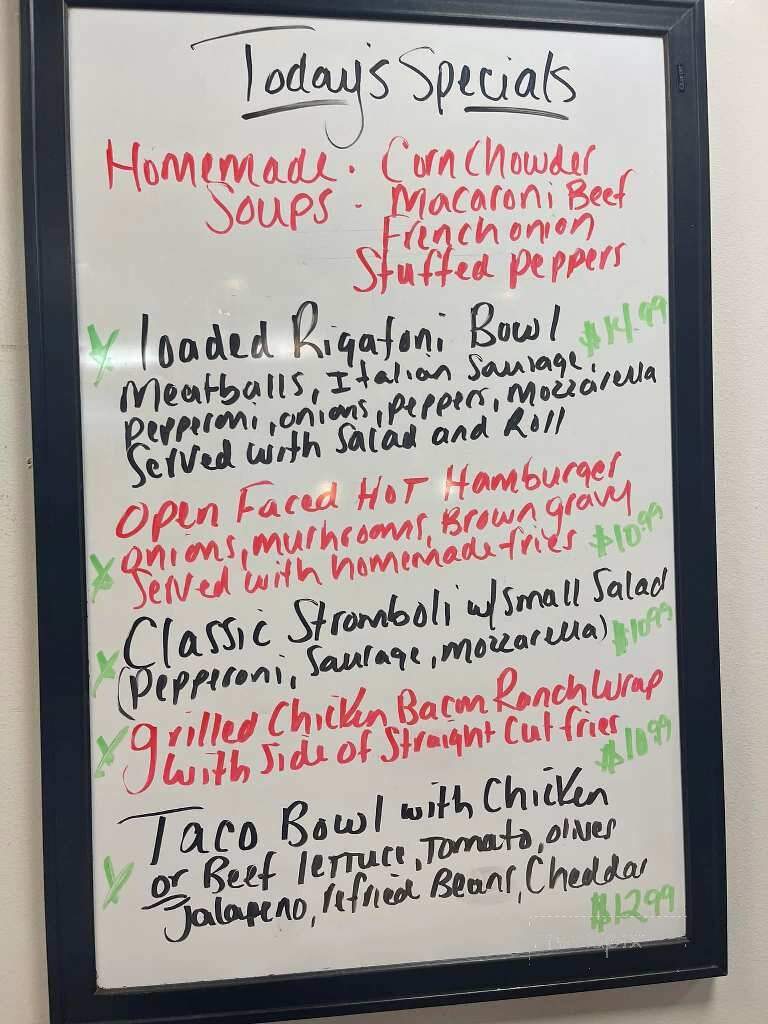 Today's Specials
Homemade · Corn Chowder
Soups - Macaroni Beef
French onion
Stuffed peppers
loaded Rigatoni Bowl $14.99
Meatballs, Italian Sausage,
pepperoni, onions, peppers, mozzarella
Served with Salad and Roll
Open Faced Hot Hamburger
onions, mushrooms, Brown gravy
Served with homemade fries $10.99
Classic Stromboli w/ small Salad
(Pepperoni, Sausage, mozzarella) $10.99
grilled Chicken Bacon Ranch Wrap
with Side of Straight Cut fries
$10.99
Taco Bowl with Chicken
or Beef lettuce, Tomato, olives
Jalapeno, refried Beans, Cheddar
$12.99